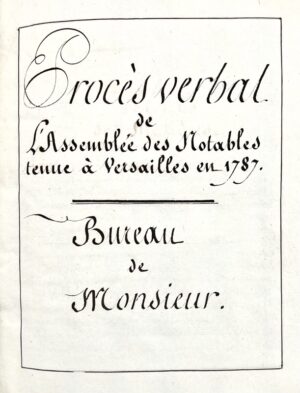 Procès verbal
de
L'Assemblée des Notables
tenue à Versailles en 1787.
Bureau
de
Monsieur.